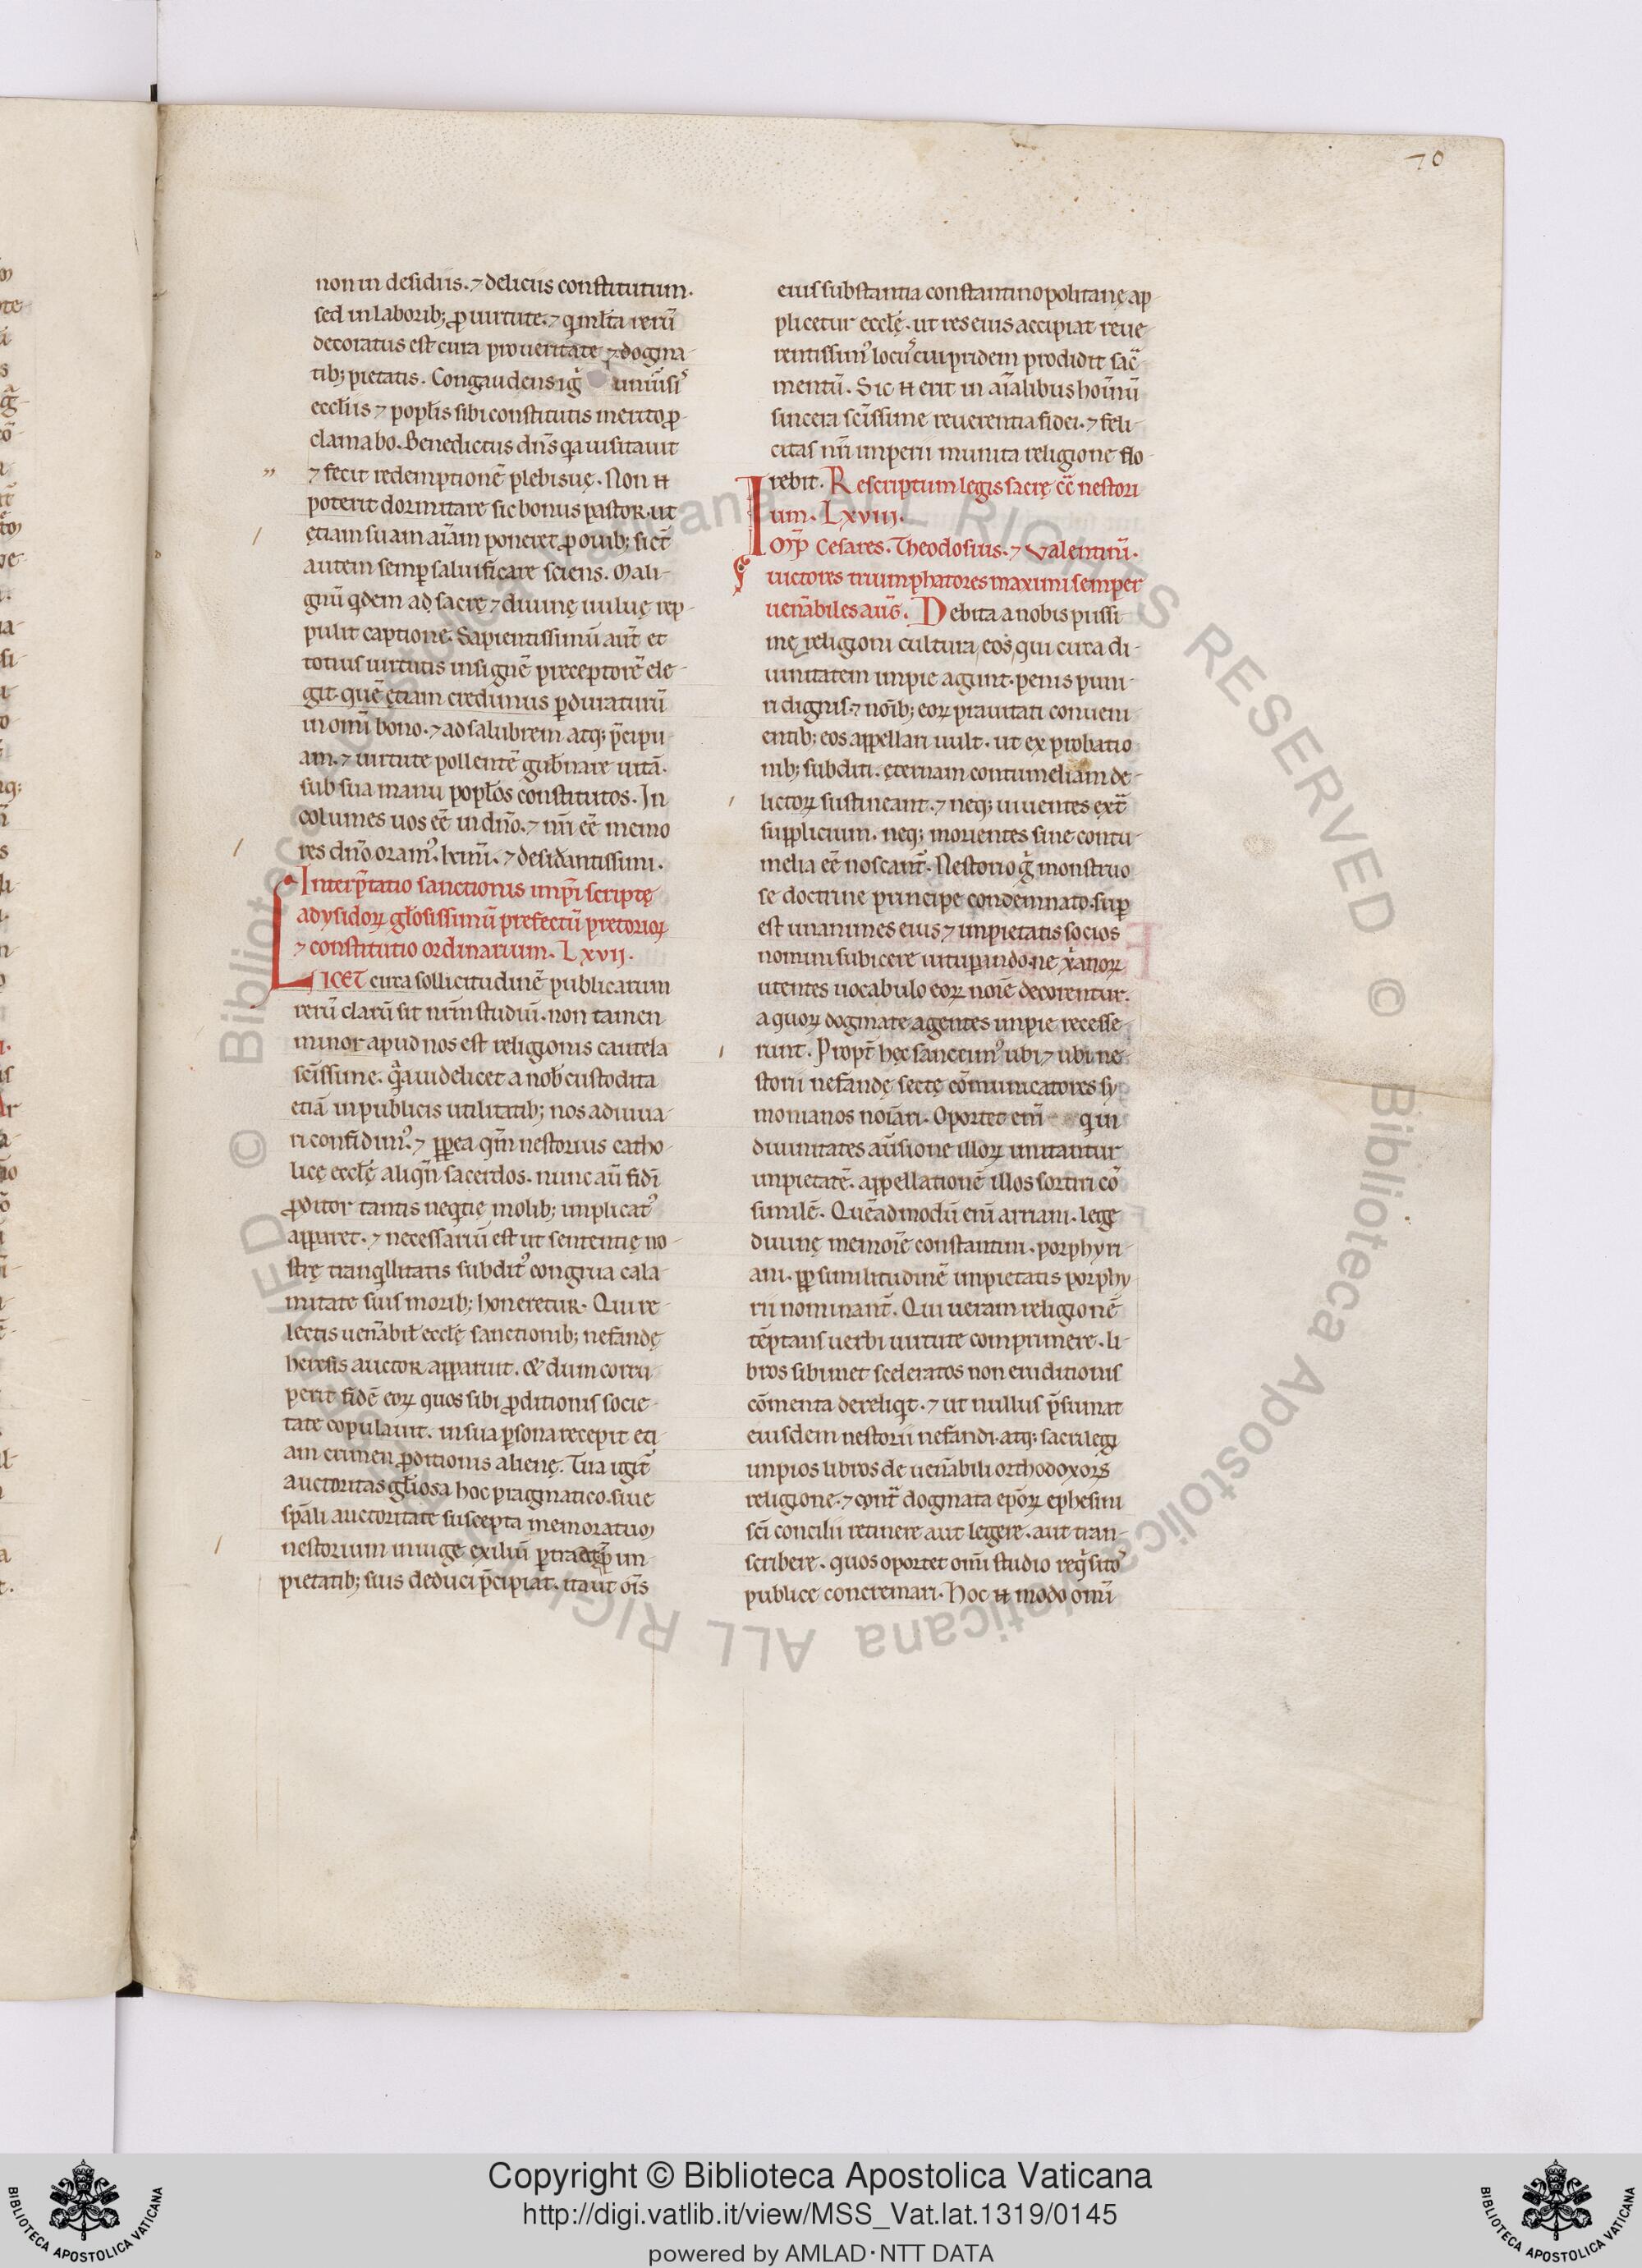 70
non in desidiis. ⁊ deliciis constitutum.
sed in laborib; ꝓ uirtute. ⁊ qm̄ lta rerū
decoratus est cura pro ueritate ⁊ dogma-
tib; pietatis. Congaudens igͥ uniusiˢ
eccliis ⁊ popl̄is sibi constitutis merito ꝓ-
clamabo. Benedictus dn̄s qa uisitauit
⁊ fecit redemptionē plebis suę. Non n̄
poterit dormitare sic bonus pastor. ut
ętiam suam aīam poneret ꝓ ouib; sic̄
autem semꝑ saluificare sciens. Mali-
gnū qdem ad sacrę ⁊ diuinę uuluę rep-
pulit captione. Sapientissimū aūt et
totius uirtutis insignē preceptorē ele-
git. quē ętiam credimus ꝑduraturū
in omī bono. ⁊ ad salubrem atq; p̄cipu-
am. ⁊ uirtute pollentē gub̄nare uitā.
sub sua manu popl̄os constitutos. In
columes uos eē in dn̄o. ⁊ nr̄i eē memo
res dn̄o oramꝰ. kmī. ⁊ desidantissimi.
Interp̄tatio sanctionis imp̄i scriptę
ad ysidoꝝ gl̄osissimū prefectū pretorioꝝ
⁊ constitutio ordinarium. Lxvij.
LICET cura sollicitudinē publicarum
rerū clarū sit nr̄m studiū. non tamen
minor apud nos est religionis cautela
sc̄issime. qͣ uidelicet a nob̄ custodita
etiā in publicis utilitatib; nos adiuua-
ri confidimꝰ. ⁊ ꝓpea qm̄ nestorius catho-
licę ecclę aliqn̄ sacerdos. nunc aū fidī
ꝓditor tantis neqtię molib; implicatꝰ
apparet. ⁊ necessariū est ut sententię no-
strę tranqllitatis subditꝰ congrua cala-
mitate suis morib; honeretur. Qui re-
lectis uen̄abil̄ ecclę sanctionib; nefandę
heresis auctor apparuit. & dum corru
perit fidē eoꝝ quos sibi ꝓditionis socie-
tate copulauit. in sua ꝑsona recepit eti-
am crimen ꝓditionis alienę. Tua igit̄
auctoritas gl̄iosa hoc pragmatico. siue
sp̄ali auctoritate suscepta memoratum
nestorium in iuge exiliū ꝑtrad ꝓp im-
pietatib; suis deduci p̄cipiat. ita ut oīs
eius substantia constantinopolitanę ap-
plicetur ecclę. ut res eius accipiat reue-
rentissimꝰ locꝰ cui pridem prodidit sac̄-
mentū. Sic n̄ erit in aīalibus homīnū
sincera sc̄issime reuerentia fidei. ⁊ feli-
citas nr̄i imperii munita religione flo-
rebit. Rescriptum legis sacrę cc̄ nestori
um. Lxviij.
Imp̄ Cesares. Theodosius. ⁊ Valentinū.
uictores triumphatores maximi semper
uen̄abiles aūg. Debita a nobis piissi
mę religioni cultura, eos qui circa di-
uinitatem impie agunt. penis puni-
ri dignis. ⁊ noīb; eoꝝ prauitati conueni
entib; eos appellari uult. ut ex probatio
nib; subditi. ęternam contumeliam de-
lictoꝝ sustineant. ⁊ neq; uiuentes ext̄
supplicium. neq; morientes sine contu-
melia eē noscant̄. Nestorio gͥ monstruo
se doctrine principe condemnato. suꝑ
est unanimes eius ⁊ impietatis socios
nomini subicere uituꝑando. ne xͥanoꝝ
utentes uocabulo eoꝝ noīe decorentur.
a quoꝝ dogmate agentes impie recesse
runt. Propt̄ hęc sancimꝰ ubi ⁊ ubi ne-
storii nefandę sectę cōmunicatores sy
monianos noīari. Oportet enī qui
diuinitates auisione illoꝝ imitantur
impietatē. appellationē illos sortiri cō
similē. Quēadmodū enī arriani. lege
diuinę memorię constantini. porphyri-
ani. ꝓp similitudinē impietatis porphy-
rii nominant̄. Qui ueram religionē
tēptans uerbi uirtute comprimere. li-
bros sibimet sceleratos non eruditionis
cōmenta dereliqt. ⁊ ut nullus p̄sumat
eiusdem nestorii nefandi. atq; sacrilegi
impios libros de uen̄abili orthodoxorͣ
religione. ⁊ cont̄ dogmata ep̄oꝝ ephesini
sc̄i concilii retinere aut legere. aut tran-
scribere. quos oportet omī studio reqͥsitoˢ
publice concremari. Hoc n̄ modo omī
Copyright © Biblioteca Apostolica Vaticana
http://digi.vatlib.it/view/MSS_Vat.lat.1319/0145
powered by AMLAD·NTT DATA
BIBLIOTECA APOSTOLICA VATICANA
BIBLIOTECA APOSTOLICA VATICANA